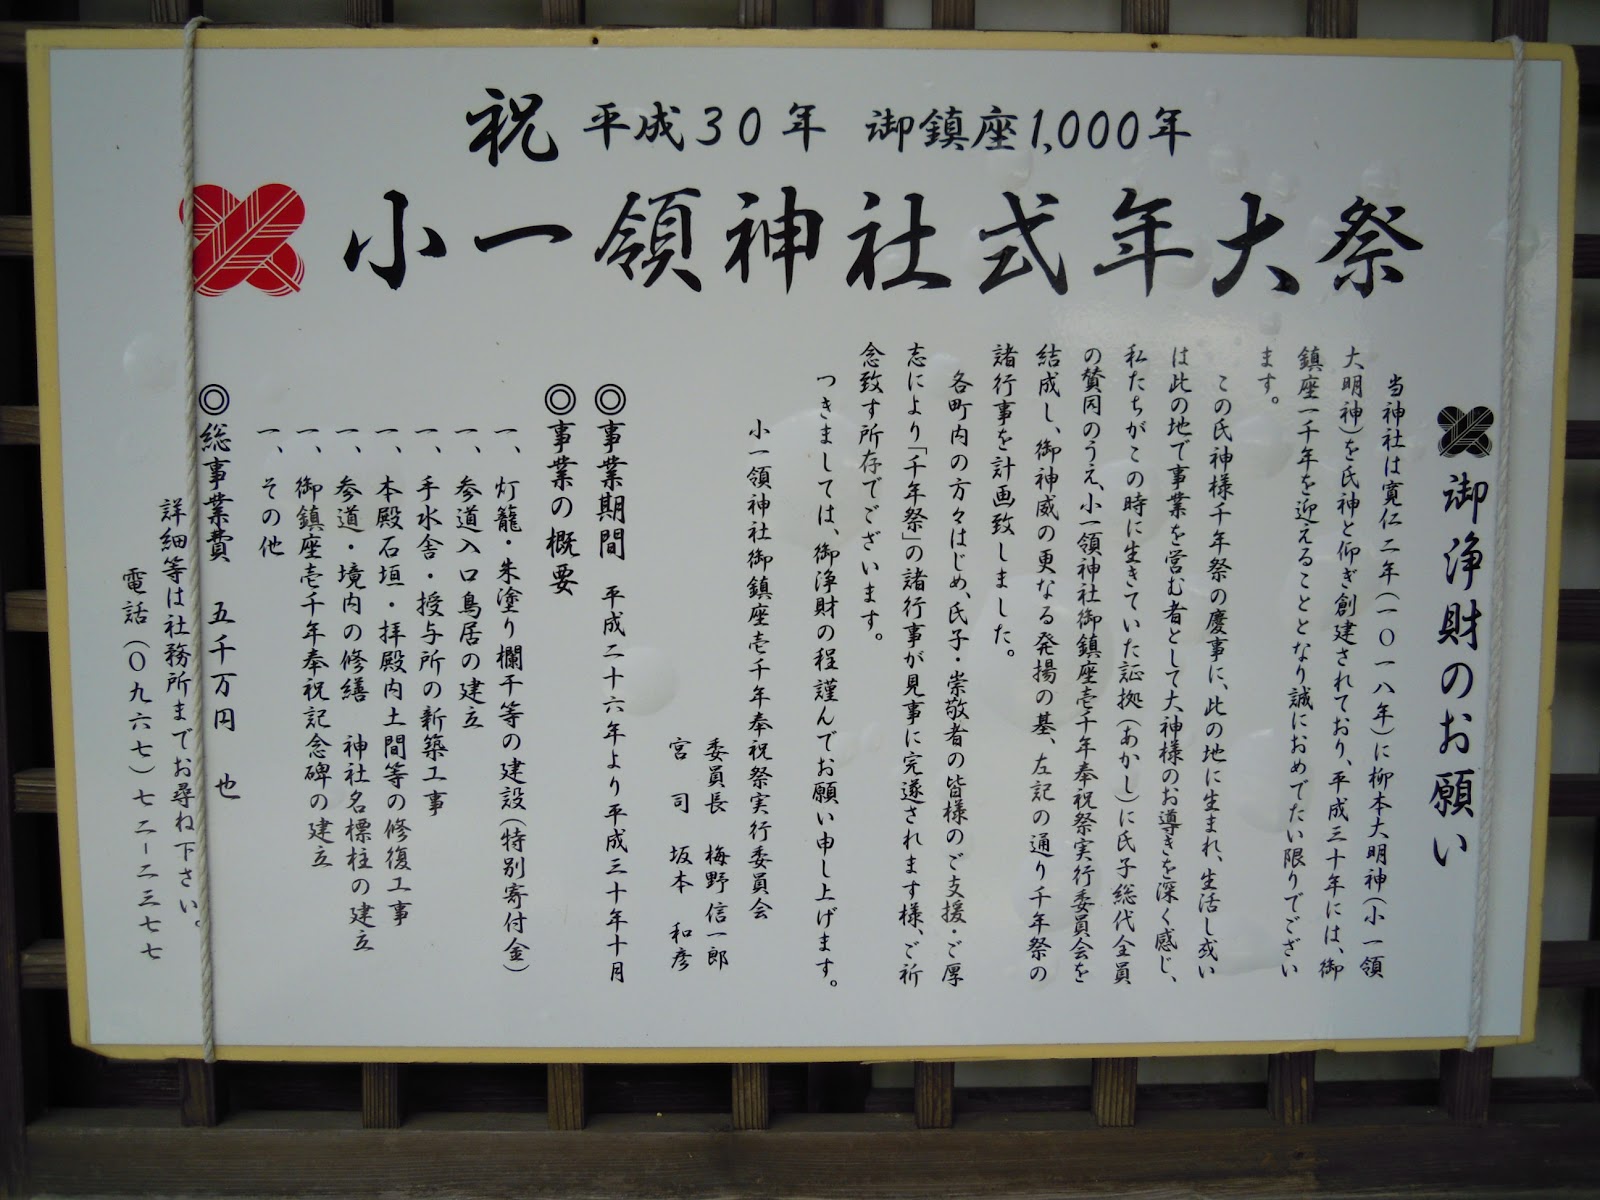 祝 平成30年 御鎮座1,000年
小一領神社式年大祭
御浄財のお願い
当神社は寛仁二年(一〇一八年)に柳本大明神(小一領
大明神)を氏神と仰ぎ創建されており、平成三十年には、御
鎮座一千年を迎えることとなり誠におめでたい限りでござい
ます。
この氏神様千年祭の慶事に、此の地に生まれ、生活し或い
は此の地で事業を営む者として大神様のお導きを深く感じ、
私たちがこの時に生きていた証拠(あかし)に氏子総代全員
の賛同のうえ、小一領神社御鎮座壱千年奉祝祭実行委員会を
結成し、御神威の更なる発揚の基、左記の通り千年祭の
諸行事を計画致しました。
各町内の方々はじめ、氏子・崇敬者の皆様のご支援・ご厚
志により「千年祭」の諸行事が見事に完遂されます様、ご祈
念致す所存でございます。
つきましては、御浄財の程謹んでお願い申し上げます。
小一領神社御鎮座壱千年奉祝祭実行委員会
委員長 梅野信一郎
宮司 坂本和彦
◎事業期間 平成二十六年より平成三十年十月
◎事業の概要
一、灯籠・朱塗り欄干等の建設(特別寄付金)
一、参道入口鳥居の建立
一、手水舎・授与所の新築工事
一、本殿石垣・拝殿内土間等の修復工事
一、参道・境内の修繕 神社名標柱の建立
一、御鎮座壱千年奉祝記念碑の建立
一、その他
◎総事業費 五千万円 也
詳細等は社務所までお尋ね下さい。
電話(〇九六七)七二-二三七七